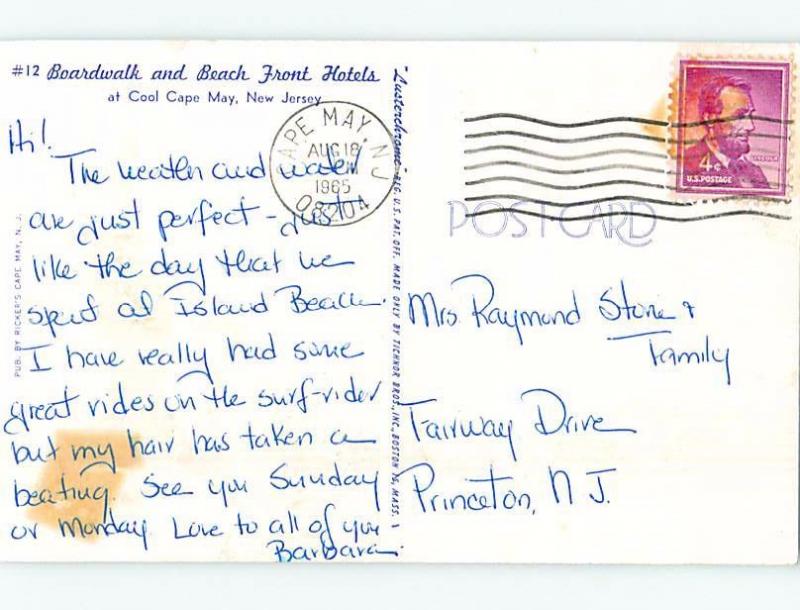 #12 Boardwalk and Beach Front Hotels
at Cool Cape May, New Jersey
Hi!
The weather and water
are just perfect - just
like the day that we
spent at Island Beach.
I have really had some
great rides on the surf-rider
but my hair has taken a
beating. See you Sunday
or Monday. Love to all of you
Barbara.
PUB. BY RICKER'S CAPE MAY, N. J.
"Lusterchrome" REG. U.S. PAT. OFF. MADE ONLY BY TICHNOR BROS., INC., BOSTON 15, MASS.
CAPE MAY, N.J.
AUG 18
PM
1965
08204
4¢
LINCOLN
U.S. POSTAGE
POST CARD
Mrs. Raymond Stone &
Family
Fairway Drive
Princeton, N J.